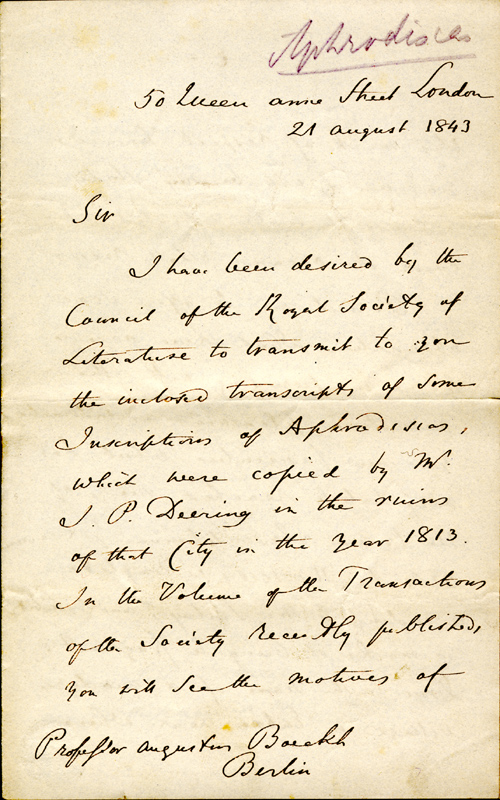 Aphrodisias
50 Queen Anne Street London
21 August 1843
Sir
I have been desired by the
Council of the Royal Society of
Literature to transmit to you
the inclosed transcripts of some
Inscriptions of Aphrodisias,
which were copied by Mr.
J. P. Deering in the ruins
of that City in the year 1813.
In the Volume of the Transactions
of the Society recently published,
you will see the motives of
Professor Augustus Boeckh
Berlin